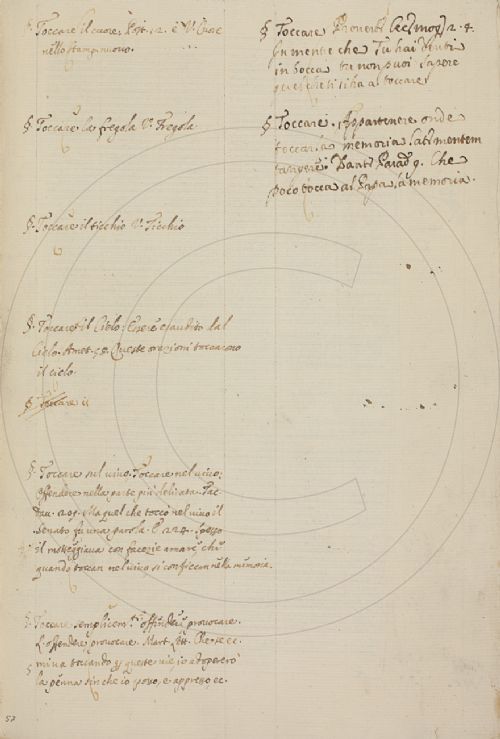 §. Toccare il cuore. Fort. 12. è V. Cuore
nello stampinuovo.
§. Toccare la fregola V. Fregola.
§. Toccare il ticchio V. Ticchio
§. Toccare il Cielo: Essere esaudito dal
Cielo. Queste orazioni toccarono
il cielo.
§. Toccare il
§. Toccare sul vivo. Toccare nel vivo;
offendere nella parte più delicata. Tac.
Dav. Ma quel che toccò nel vivo il
Senato fu una parola. E 224. spesso
il motteggiava con facezie amare, che
quando toccan nel vivo si conficcan nella memoria.
§. Toccare semplicem.te offender, provocare.
L. offendere, provocare. Mart. Lett. Che se ec.
mi va toccando queste vie, io adopererò
la penna sin che io posso, e appresso ec.
§ Toccare Proverb. Cecc. mogl. 2. 4.
Su mentre che Tu hai denti
in bocca tu non puoi sapere
quel che ti si ha a toccare
§ Toccare. Appartenere onde
toccar a memoria Lat. mentem
Dant. Parad. 9. Che
poco tocca al Papa la memoria.
57